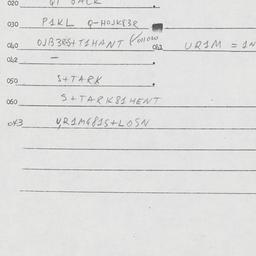 020
030 P1KL Q-HOJK83R
040 OJB3RS+T1HANT
041 UR1M = 1N
042 -
050 S+TARK
060 S+TARK81HENT
043 UR1M681S+LOSN